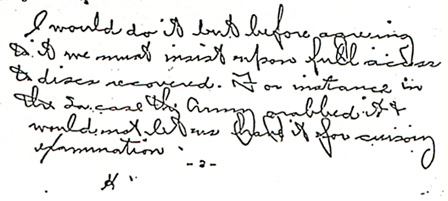 I would do it but before agreeing
to it we must insist upon full access
to discs recovered. For instance in
the case the Army grabbed it &
would not let us have it for cursory
examination.
- 2 -
H